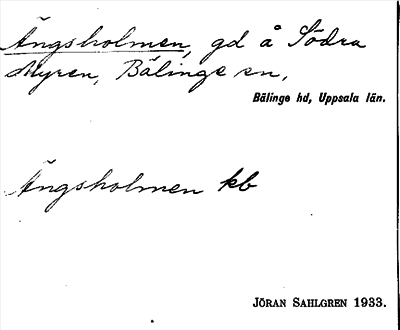 Ängsholmen, gd å Södra
Myren, Bälinge sn,
Bälinge hd, Uppsala län.
Ängsholmen kb
JÖRAN SAHLGREN 1933.